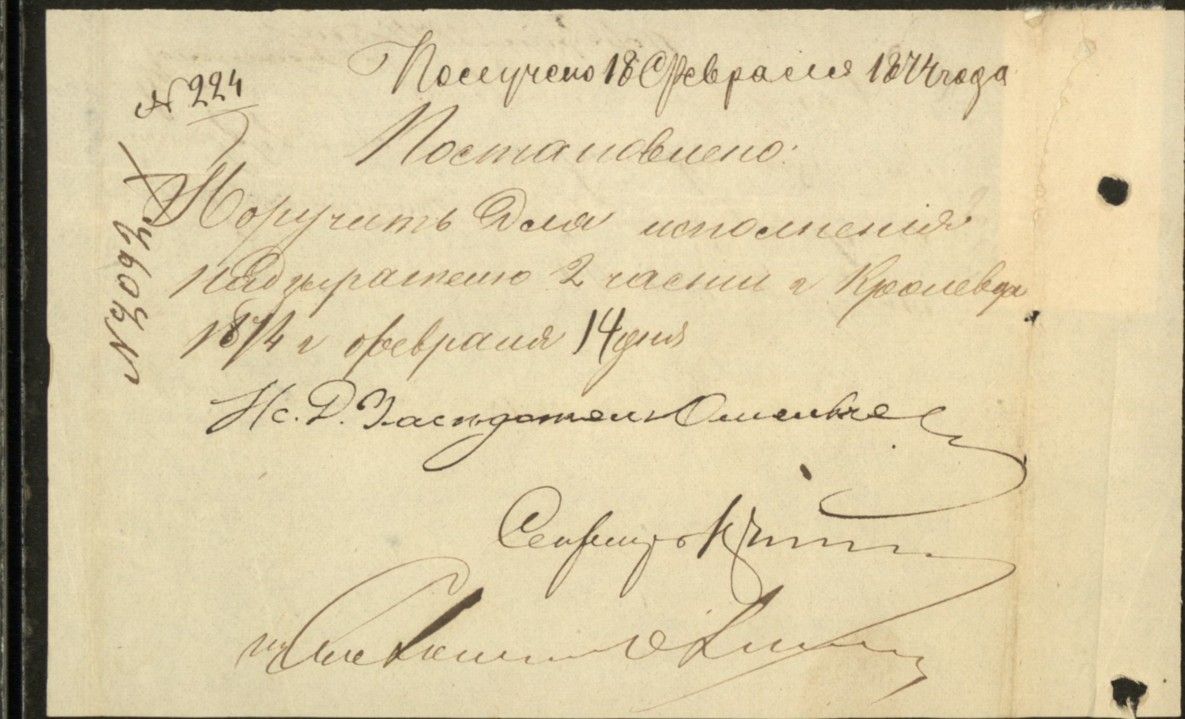 Получено 18 Февраля 1874 года
№ 224
Постановлено:
Поручить для исполненія
Надзирателю 2 части г Кролевца
1874 г февраля 14 дня
№ 2092
Ис. Д. Заседатель
Секретарь